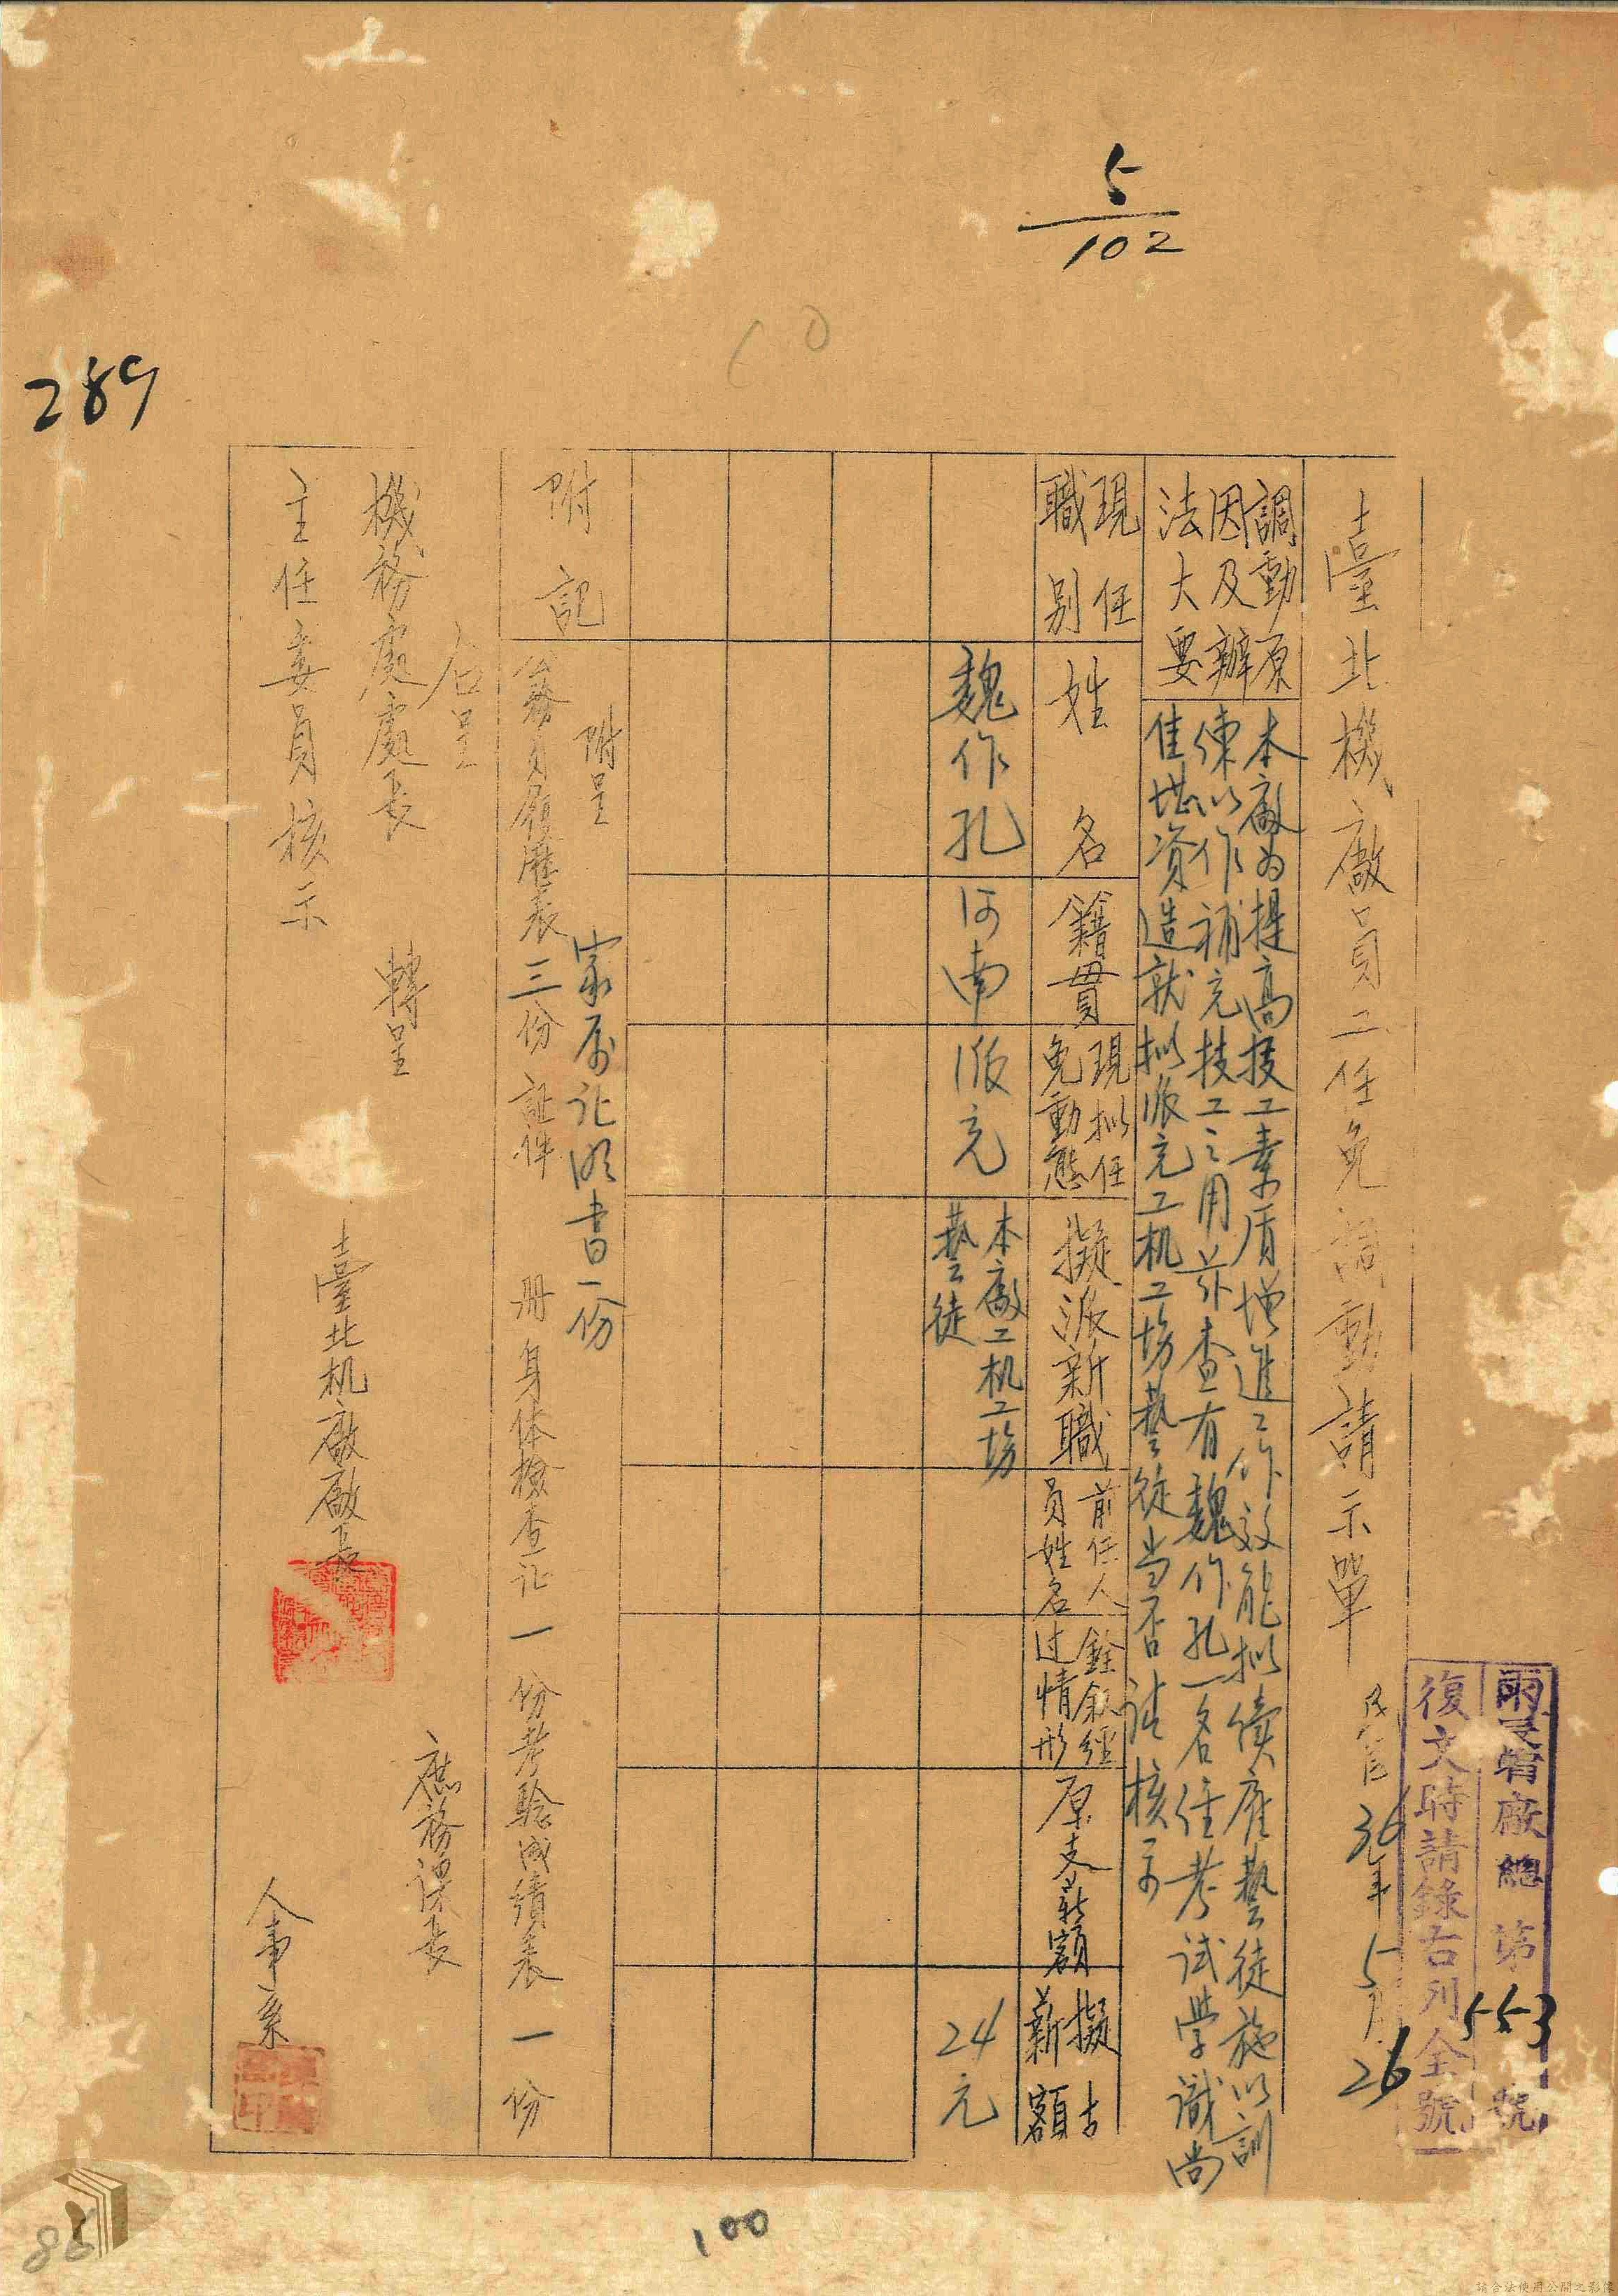 5
102
289
60
臺北機廠員工任免調動請示單
民國36年5月26
廠總 第553號
復文時請錄右列全號
調動原
因及辦
法大要
本廠為提高技工素質增進工作效能拟續雇藝徒施以訓
練以作補充技工之用茲查有魏作孔一名經考試學識尚
佳堪資造就拟派充工机工場藝徒当否請核示
現任
職別
姓名
籍貫
現拟任
免動態
擬派新職
前任人
員姓名
銓敘經
过情形
原支薪額
擬支
薪額
魏作孔
河南
派充
本廠工机工場
藝徒
24元
附記
附呈
家屬证明书一份
公務員履歷表三份 証件 册 身体檢查证一份考驗成績表一份
右呈
機務處處長 轉呈
主任委員核示
臺北机廠廠長
庶務課長
人事系
100
88
請合法使用公開之影像